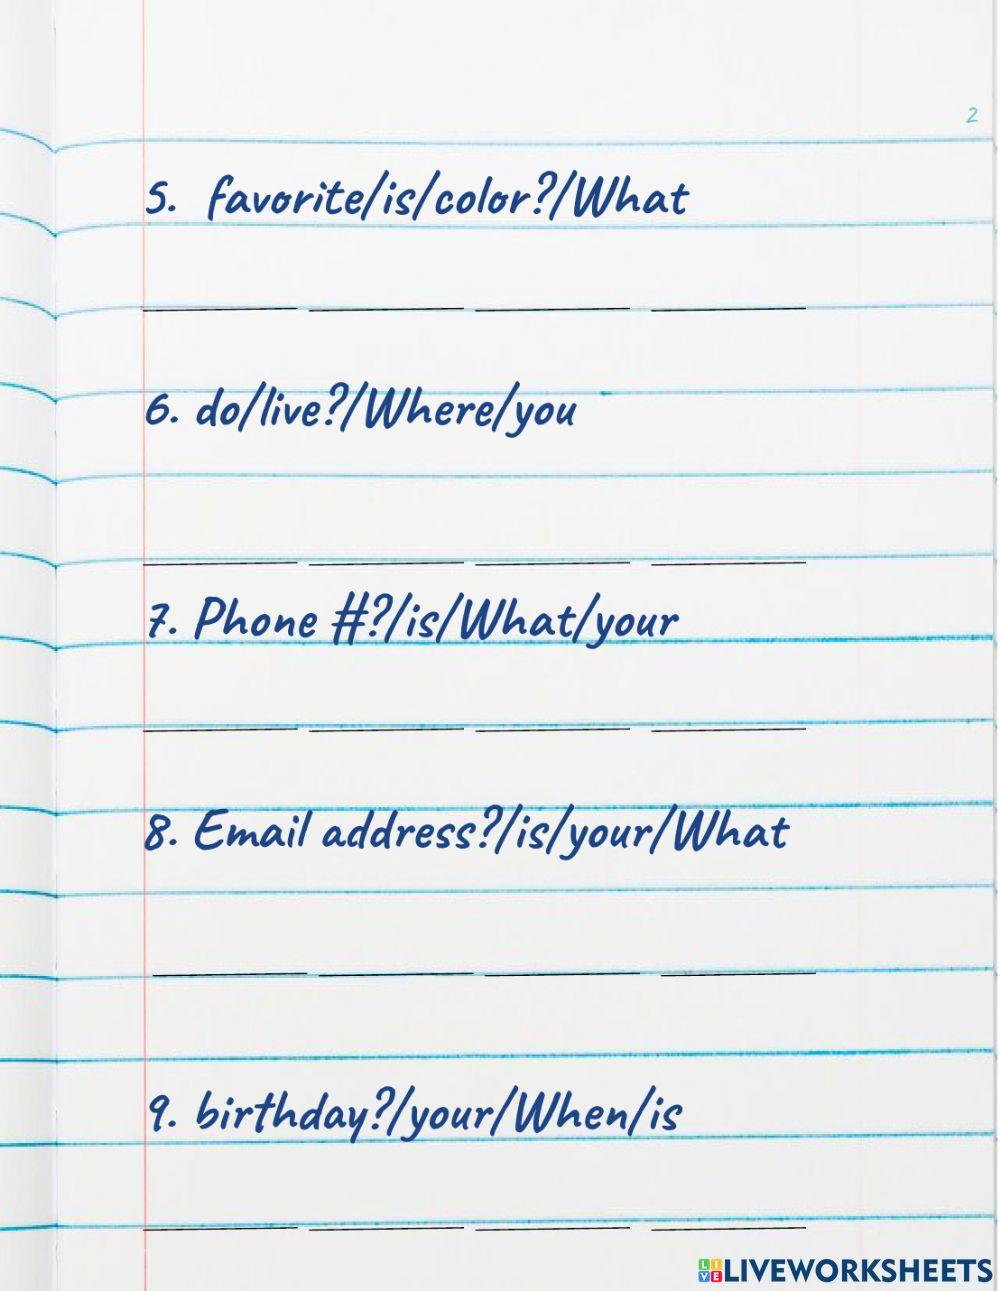 2
5. favorite/is/color?/What
6. do/live?/Where/you
7. Phone #?/is/What/your
8. Email address?/is/your/What
9. birthday?/your/When/is
LIVEWORKSHEETS